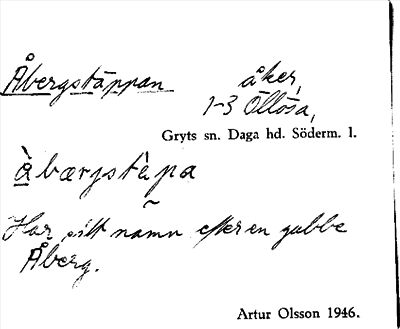 Åbergstäppan åker,
1-3 Öllösa,
Gryts sn. Daga hd. Söderm. l.
åbærgstɛ̀pa
Har sitt namn efter en gubbe
Åberg.
Artur Olsson 1946.